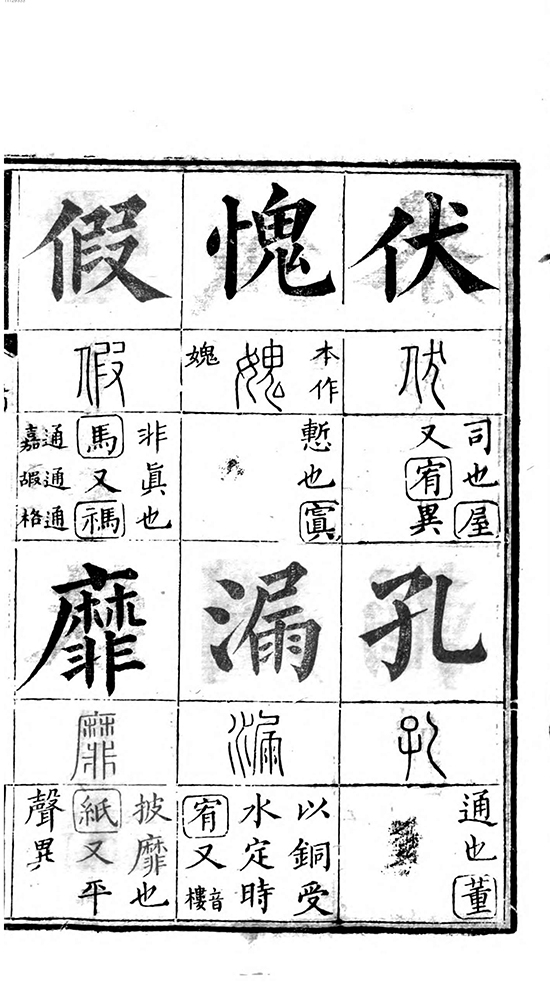 伏
伏
司也屋
又宥異
孔
孔
通也董
愧
本作
媿
媿
慙也寘
漏
漏
以銅受
水定時
宥又音樓
假
假
非眞也
馬又禡
通嘉
通嘏
通格
靡
靡
披靡也
紙又平
聲異